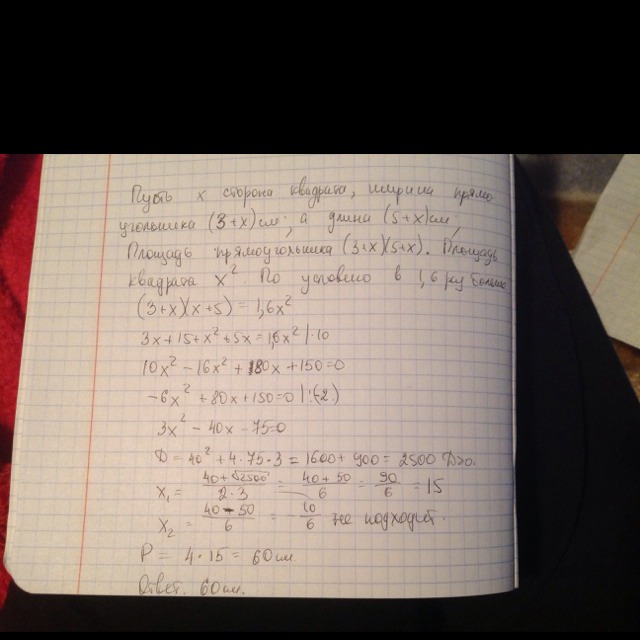 Пусть x сторона квадрата, ширина прямо
угольника (3+x) см; а длина (5+x) см,
Площадь прямоугольника (3+x)(5+x). Площадь
квадрата x². По условию в 1,6 раз больше
(3+x)(x+5) = 1,6x²
3x+15+x²+5x=1,6x² |·10
10x² - 16x² + 80x + 150 = 0
-6x² + 80x + 150 = 0 |:(-2)
3x² - 40x - 75=0
D = 40² + 4·75·3 = 1600 + 900 = 2500 D>0.
x₁ = (40+√2500)/(2·3) = (40+50)/6 = 90/6 = 15
x₂ = (40-50)/6 = -10/6 не подходит.
P = 4·15 = 60 см.
Ответ. 60 см.